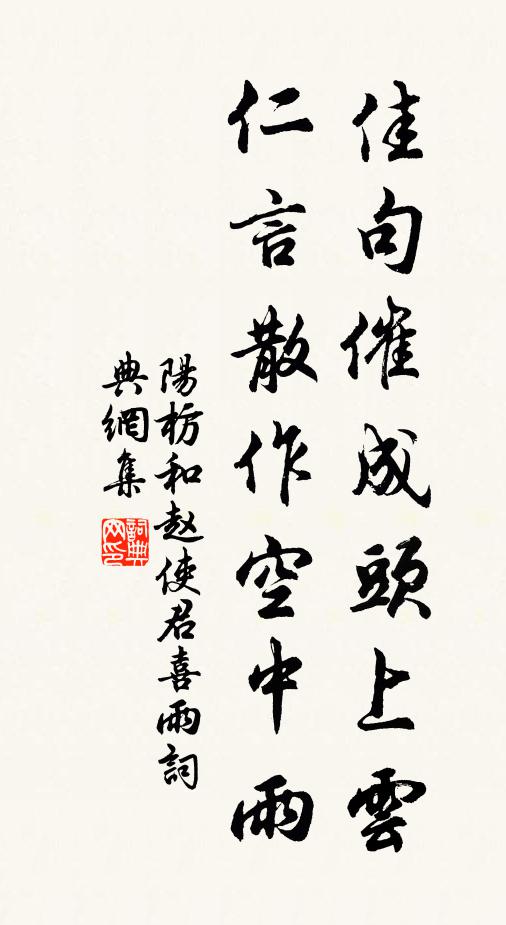 佳句催成頭上雲
仁言散作空中雨
陽枋和赵使君喜雨詞
典網集
詞典网印